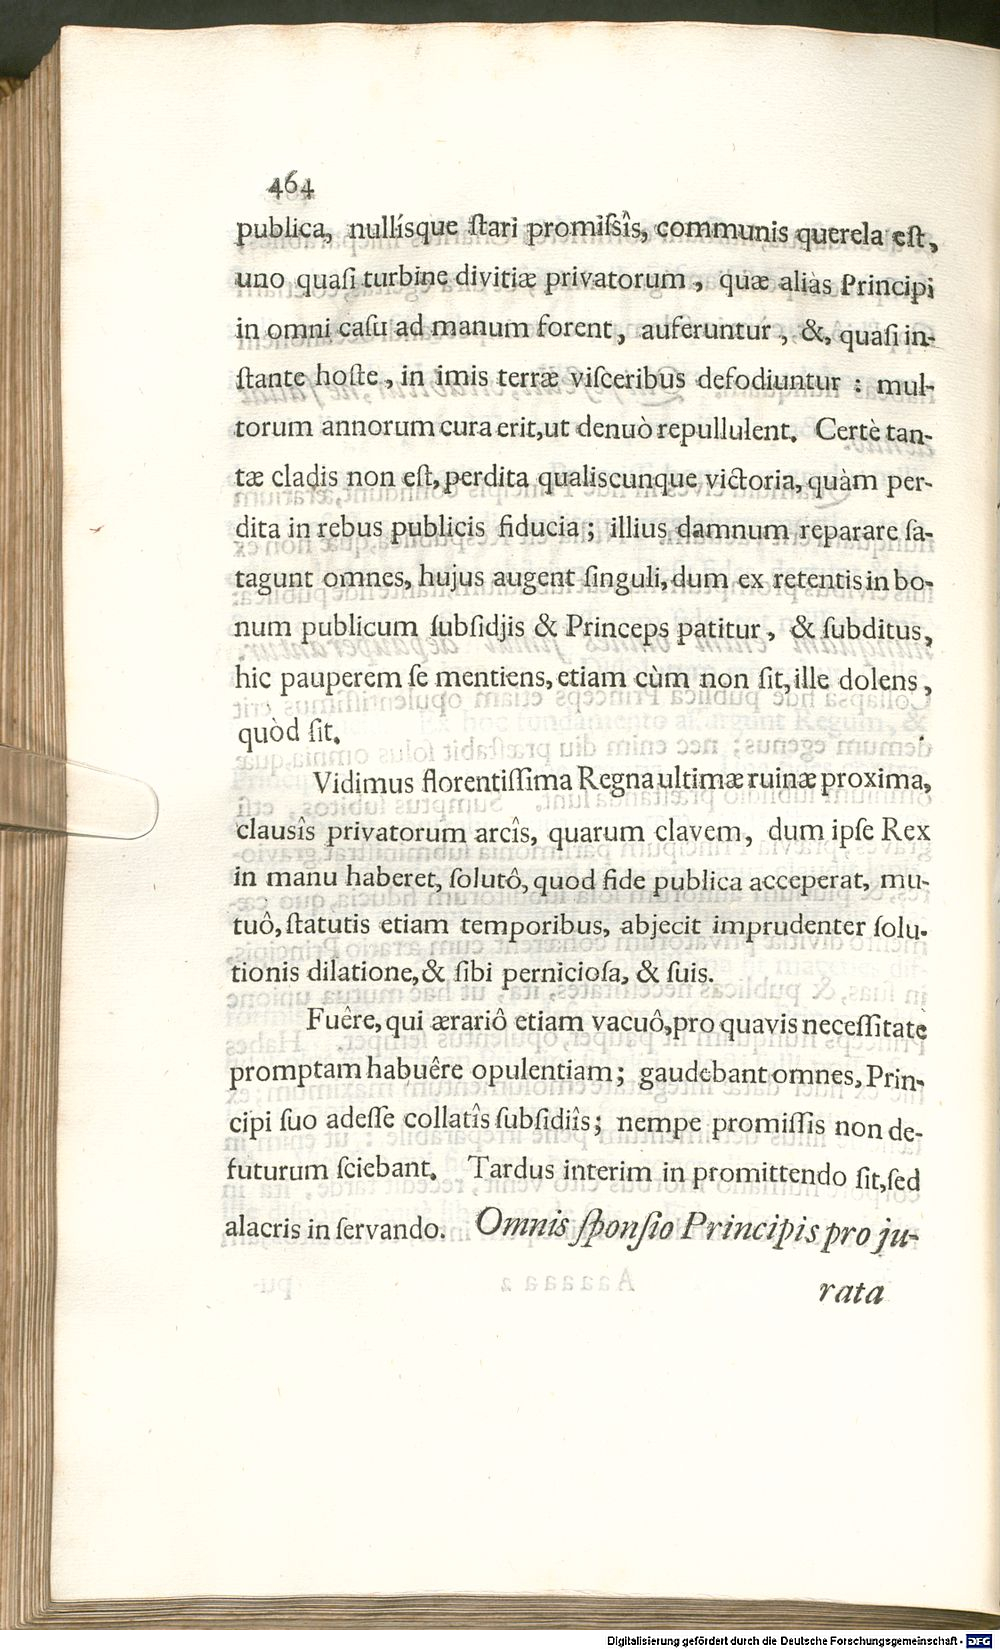 464
publica, nullísque ſtari promiſsîs, communis querela eſt,
uno quaſi turbine divitiæ privatorum, quæ aliàs Principi
in omni caſu ad manum forent, auferuntur, &, quaſi in-
ſtante hoſte, in imis terræ viſceribus defodiuntur : mul-
torum annorum cura erit, ut denuò repullulent. Certè tan-
tæ cladis non eſt, perdita qualiscunque victoria, quàm per-
dita in rebus publicis fiducia; illius damnum reparare ſa-
tagunt omnes, hujus augent ſinguli, dum ex retentis in bo-
num publicum ſubſidjis & Princeps patitur, & ſubditus,
hic pauperem ſe mentiens, etiam cùm non ſit, ille dolens,
quòd ſit.
Vidimus florentiſſima Regna ultimæ ruinæ proxima,
clauſîs privatorum arcîs, quarum clavem, dum ipſe Rex
in manu haberet, ſolutô, quod fide publica acceperat, mu-
tuô, ſtatutis etiam temporibus, abjecit imprudenter ſolu-
tionis dilatione, & ſibi pernicioſa, & ſuis.
Fuêre, qui ærariô etiam vacuô, pro quavis neceſſitate
promptam habuêre opulentiam; gaudebant omnes, Prin-
cipi ſuo adeſſe collatîs ſubſidiîs; nempe promiſſis non de-
futurum ſciebant. Tardus interim in promittendo ſit, ſed
alacris in ſervando. Omnis ſponſio Principis pro ju-
rata
Digitalisierung gefördert durch die Deutsche Forschungsgemeinschaft - DFG